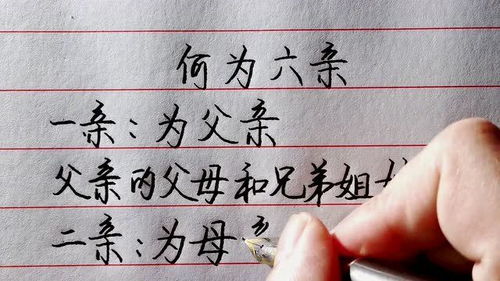 何为六亲
一亲:为父亲
父亲的父母和兄弟姐
二亲:为母